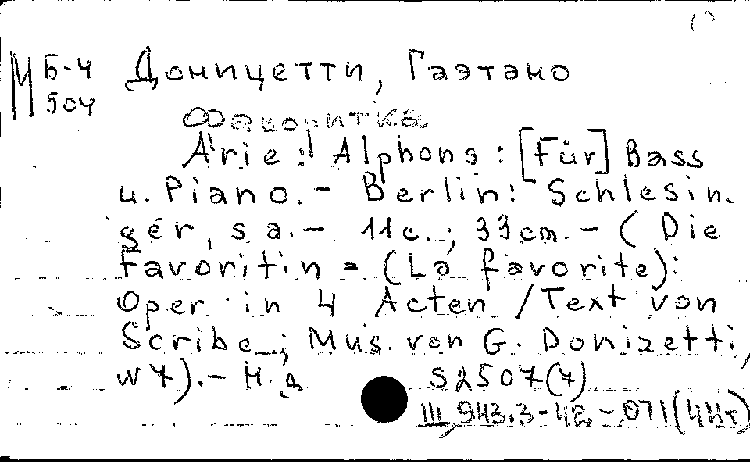 М Б-4 Доницетти, Гаэтано
504
Фаворитка
Arie: Alphons: [Für] Bass
u. Piano. - Berlin: Schlesin-
ger, s a. - 11 c.; 33 cm. - (Die
Favoritin = (La favorite):
Oper in 4 Acten / Text von
Scribe; Mus. von G. Donizetti;
№ 7). - Н. д. S2507(7)
III 943.3-42.-071(4Нг)